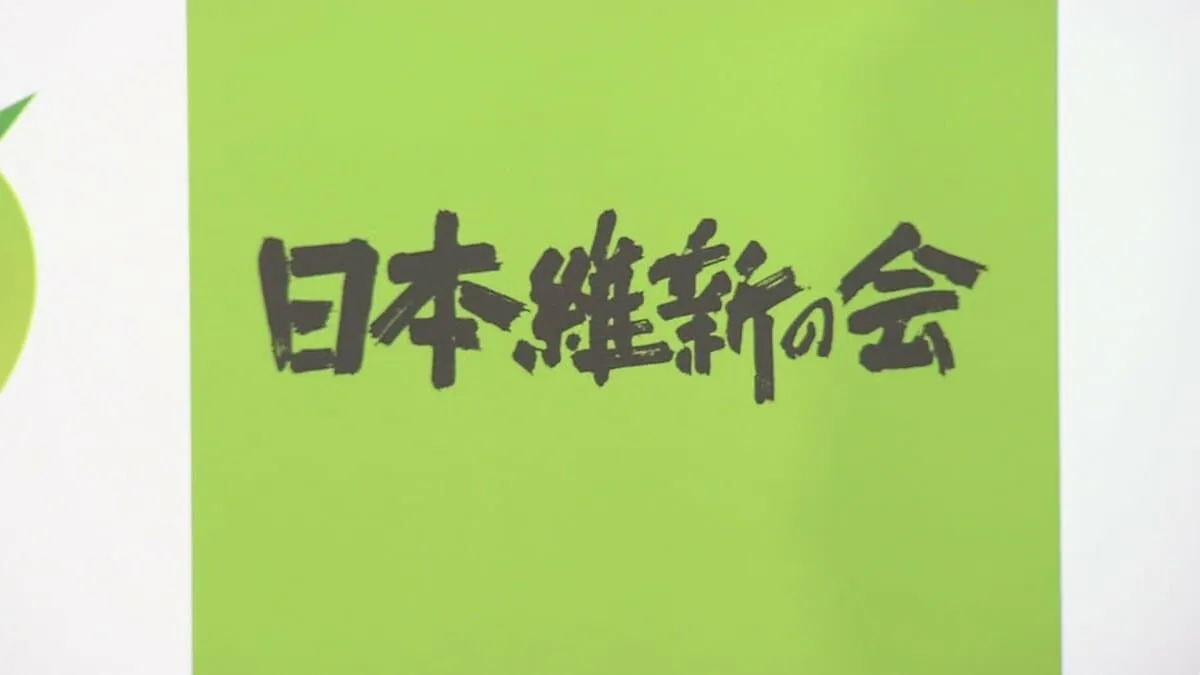 日本維新の会